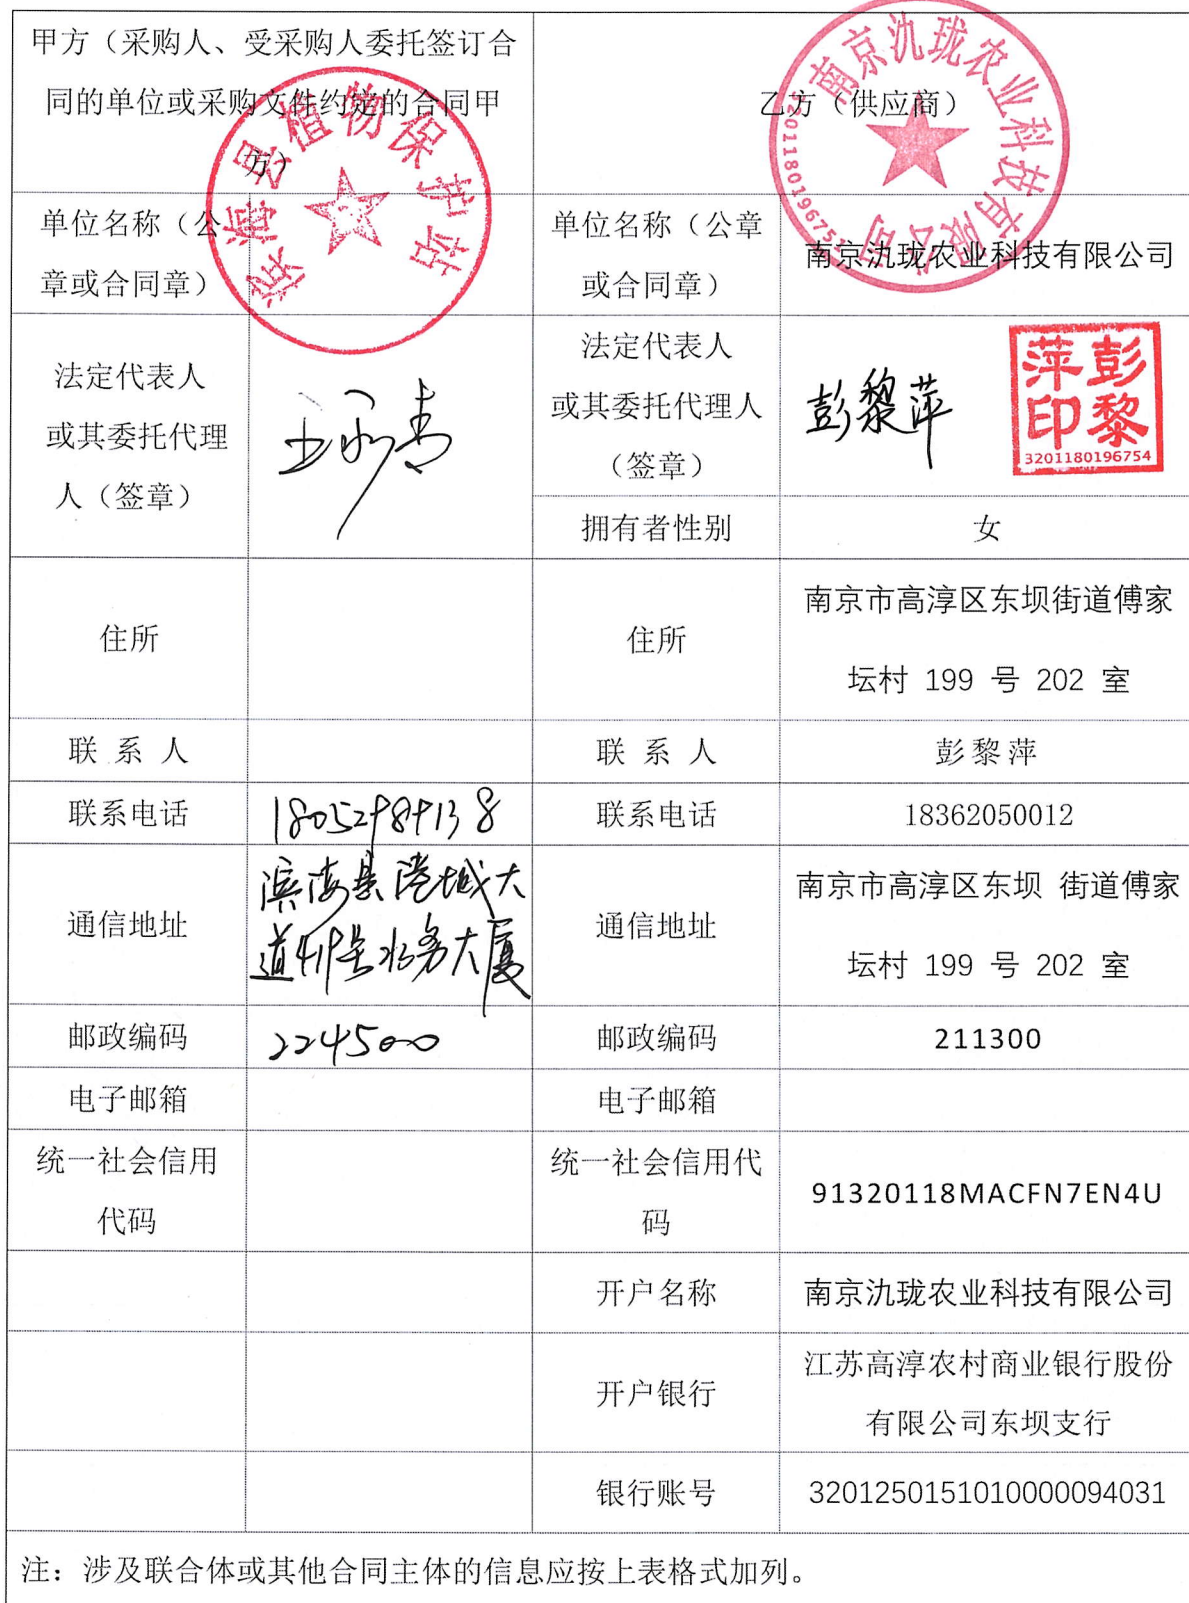 甲方（采购人、受采购人委托签订合
同的单位或采购文件约定的合同甲
方）
乙方（供应商）
滨海县植物保护站
南京氿珑农业科技有限公司
单位名称（公
章或合同章）
单位名称（公章
或合同章）
南京氿珑农业科技有限公司
法定代表人
或其委托代理
人（签章）
法定代表人
或其委托代理人
（签章）
彭黎萍
彭黎
萍印
3201180196754
拥有者性别
女
住所
住所
南京市高淳区东坝街道傅家
坛村 199 号 202 室
联 系 人
联 系 人
彭黎萍
联系电话
联系电话
18362050012
通信地址
滨海县港城大
通信地址
南京市高淳区东坝 街道傅家
坛村 199 号 202 室
邮政编码
224500
邮政编码
211300
电子邮箱
电子邮箱
统一社会信用
代码
统一社会信用代
码
91320118MACFN7EN4U
开户名称
南京氿珑农业科技有限公司
开户银行
江苏高淳农村商业银行股份
有限公司东坝支行
银行账号
3201250151010000094031
注：涉及联合体或其他合同主体的信息应按上表格式加列。